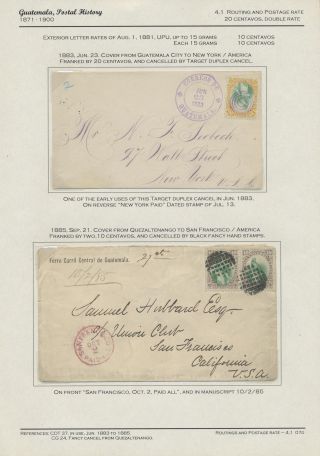 Guatemala, Postal History
1871 - 1900
4.1 Routing and Postage rate
20 centavos, double rate
Exterior letter rates of Aug. 1, 1881, UPU, up to 15 grams 10 centavos
Each 15 grams 10 centavos
1883, Jun. 23. Cover from Guatemala City to New York / America
Franked by 20 centavos, and cancelled by Target duplex cancel.
2
JUN
1883
GUATEMALA
Mr. N. F. Seebeck
97 Wall Street
New York
U.S.A
One of the early uses of this Target duplex cancel, in Jun. 1883.
On reverse "New York Paid" Dated stamp of Jul. 13.
1885, Sep. 21. Cover from Quezaltenango to San Francisco / America
Franked by two, 10 centavos, and cancelled by black fancy hand stamps.
Ferro Carril Central de Guatemala.
10/2/85
Samuel Hubbard Esq.
c/o Union Club
San Francisco
California
U.S.A.
On front "San Francisco, Oct. 2, Paid All", and in manuscript 10/2/85
References: CDT 37, in use, Jun. 1883 to 1885.
CG 24, Fancy cancel from Quezaltenango.
Routings and Postage rate – 4.1 070